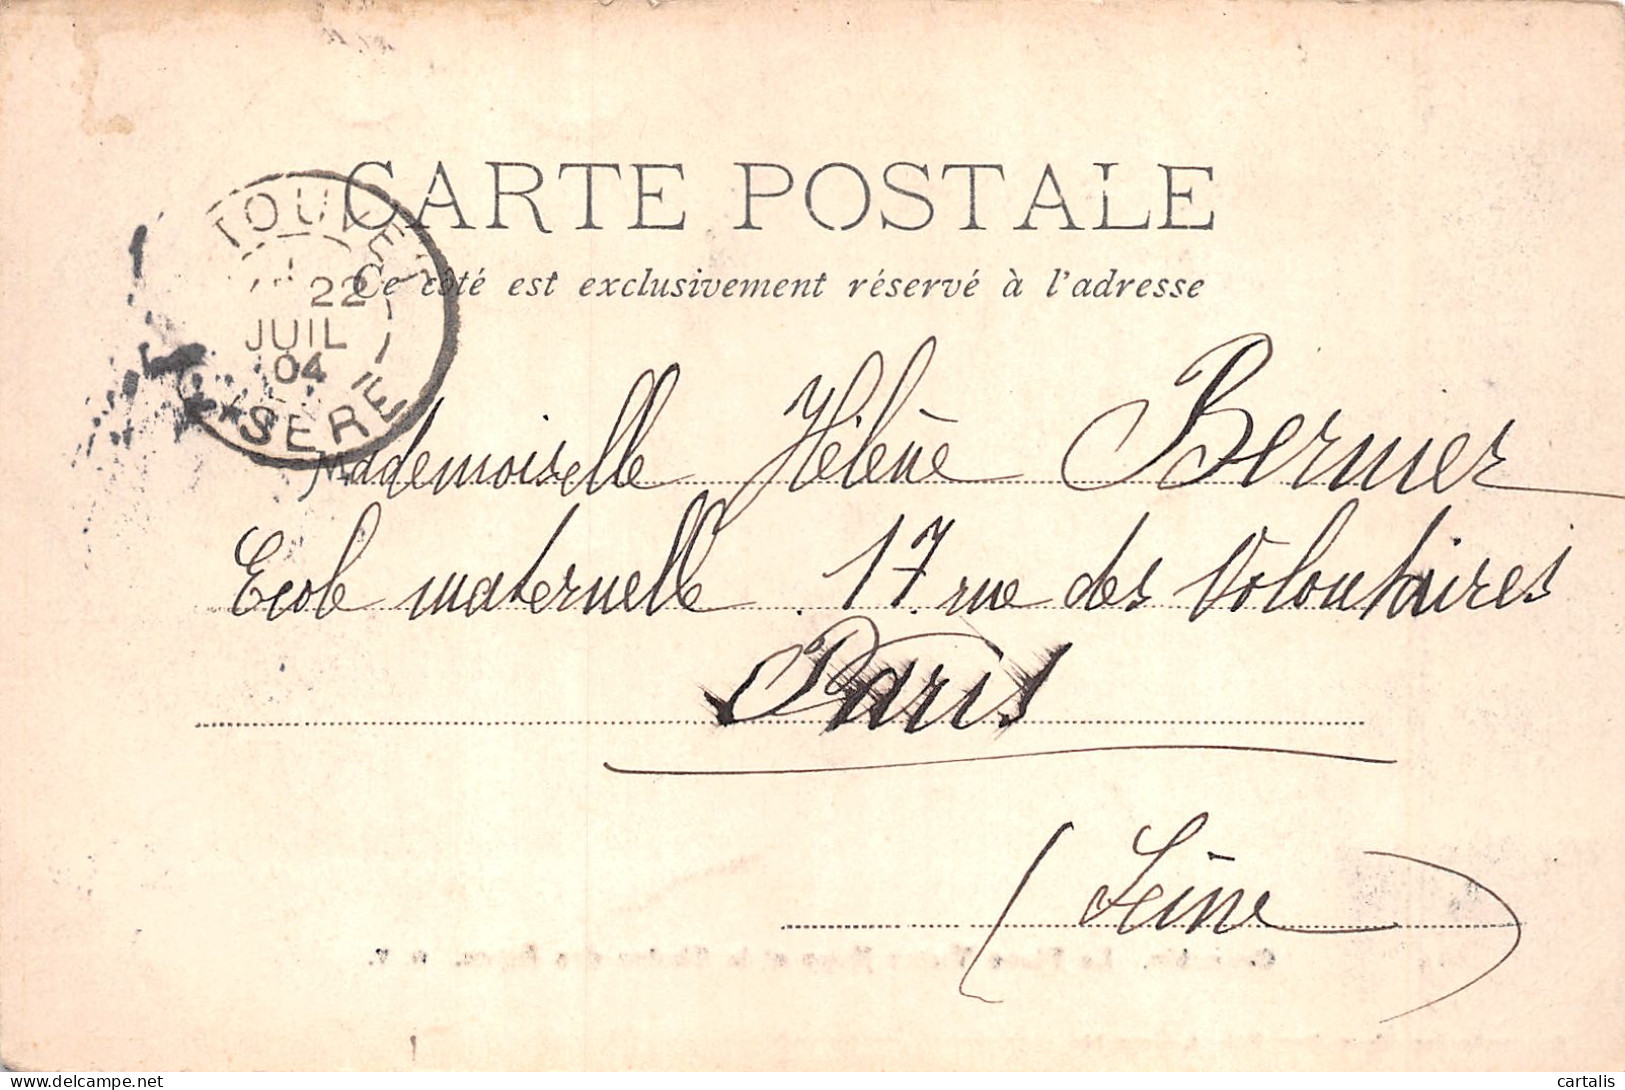 CARTE POSTALE
Ce côté est exclusivement réservé à l'adresse
TOUVET
22
JUIL
04
ISERE
Mademoiselle Hélène Bernier
Ecole maternelle . 17. rue des Volontaires
Paris
(Seine)
delcampe.net
cartalis